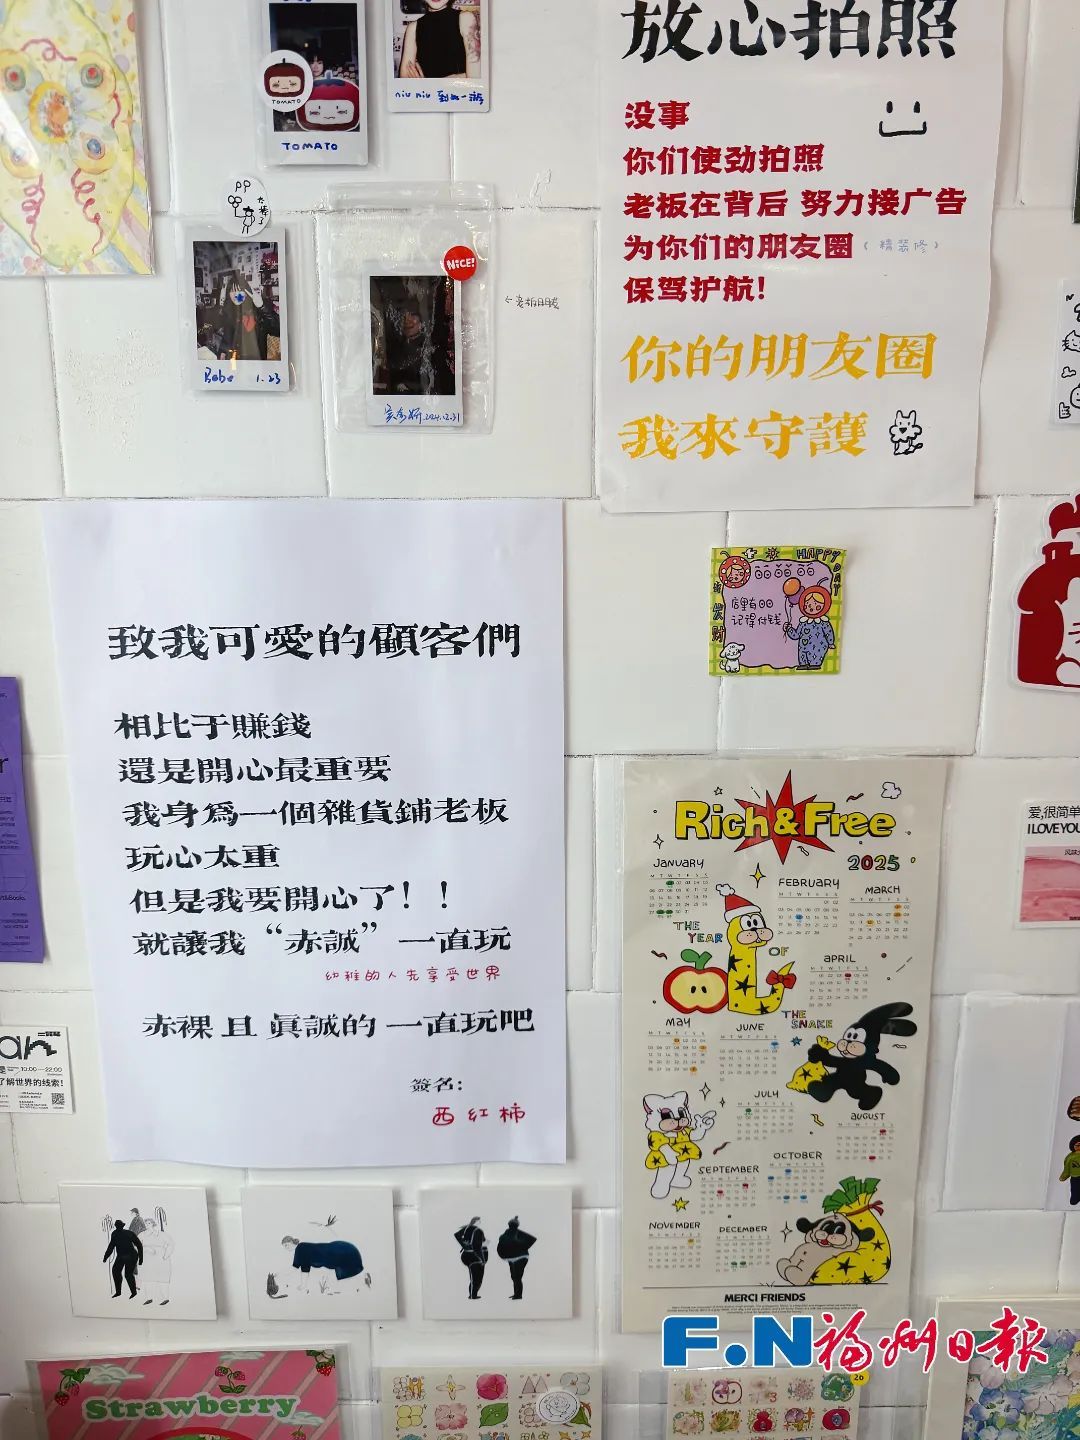 TOMATO
TOMATO
niu niu 到此一游
Bobo 1.23
NiCE!
2024.12.31
放心拍照
没事
你们使劲拍照
老板在背后 努力接广告
为你们的朋友圈(精装修)
保驾护航!
你的朋友圈
我來守護
致我可愛的顧客們
相比于賺錢
還是開心最重要
我身爲一個雜貨鋪老板
玩心太重
但是我要開心了!!
就讓我“赤誠”一直玩
幼稚的人先享受世界
赤裸 且 眞誠的 一直玩吧
簽名:
西红柿
HAPPY DAY
店里有
记得付钱
Rich & Free
2025
JANUARY
FEBRUARY
MARCH
THE YEAR OF
THE SNAKE
APRIL
MAY
JUNE
JULY
AUGUST
SEPTEMBER
OCTOBER
NOVEMBER
DECEMBER
MERCI FRIENDS
爱,很简单
I LOVE YOU
10:00—22:00
了解世界的线索!
Strawberry
F.N福州日报